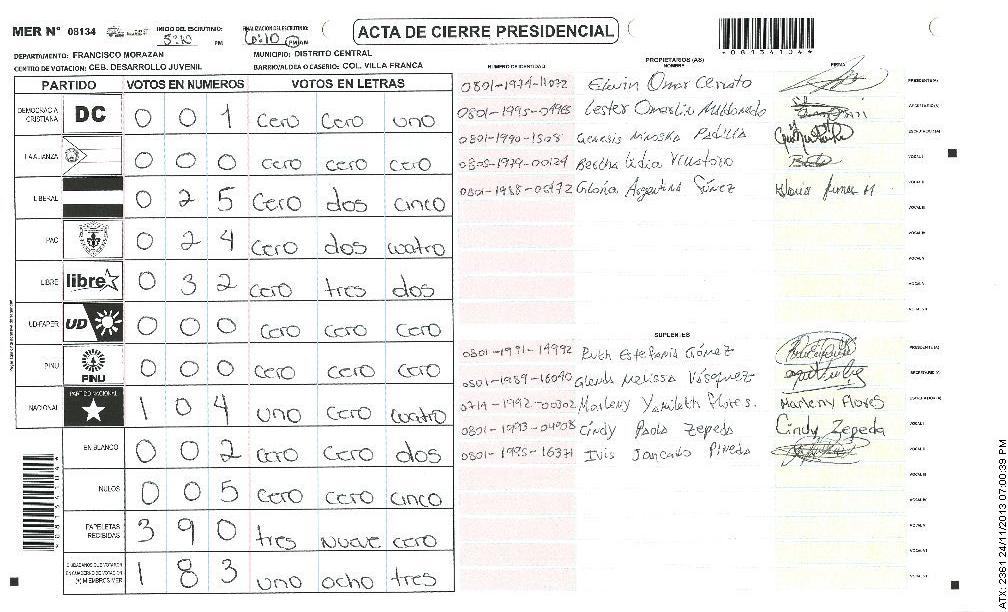 MER N° 08134
INICIO DEL ESCRUTINIO: 5:10 PM
FINALIZACION DEL ESCRUTINIO: 6:10 PM
ACTA DE CIERRE PRESIDENCIAL
DEPARTAMENTO: FRANCISCO MORAZAN
MUNICIPIO: DISTRITO CENTRAL
CENTRO DE VOTACION: CEB. DESARROLLO JUVENIL
BARRIO/ALDEA O CASERIO: COL. VILLA FRANCA
PARTIDO VOTOS EN NUMEROS VOTOS EN LETRAS
DEMOCRACIA CRISTIANA DC 0 0 1 cero cero uno
LA ALIANZA 0 0 0 cero cero cero
LIBERAL 0 2 5 cero dos cinco
PAC 0 2 4 cero dos cuatro
LIBRE libre 0 3 2 cero tres dos
UD-FAPER UD 0 0 0 cero cero cero
PINU PINU 0 0 0 cero cero cero
NACIONAL PARTIDO NACIONAL 1 0 4 uno cero cuatro
EN BLANCO 0 0 2 cero cero dos
NULOS 0 0 5 cero cero cinco
PAPELETAS RECIBIDAS 3 9 0 tres nueve cero
CIUDADANOS QUE VOTARON EN CUADERNO DE VOTACION (+) MIEMBROS MER 1 8 3 uno ocho tres
PROPIETARIOS (AS)
NUMERO DE IDENTIDAD NOMBRE FIRMA
Edwin Omar Cerrato PRESIDENTE(A)
Lester Maldonado SECRETARIO(A)
Genesis Padilla ESCRUTADOR(A)
0805-1979-00124 Bertha Lidia VOCAL I
Gloria Argentina VOCAL II
VOCAL III
VOCAL IV
VOCAL V
VOCAL VI
SUPLENTES
0801-1991-14992 Ruth Estefania Gómez PRESIDENTE (A)
0801-1989-16090 Glenda Melissa Vásquez SECRETARIO(A)
0714-1992-00302 Marleny Yamileth Flores. Marleny Flores ESCRUTADOR(A)
0801-1993-04908 Cindy Paola Zepeda Cindy Zepeda VOCAL I
0801-1995-16371 Pineda VOCAL II
VOCAL III
VOCAL IV
VOCAL V
VOCAL VI
ATX: 2361 24/11/2013 07:00:39 PM